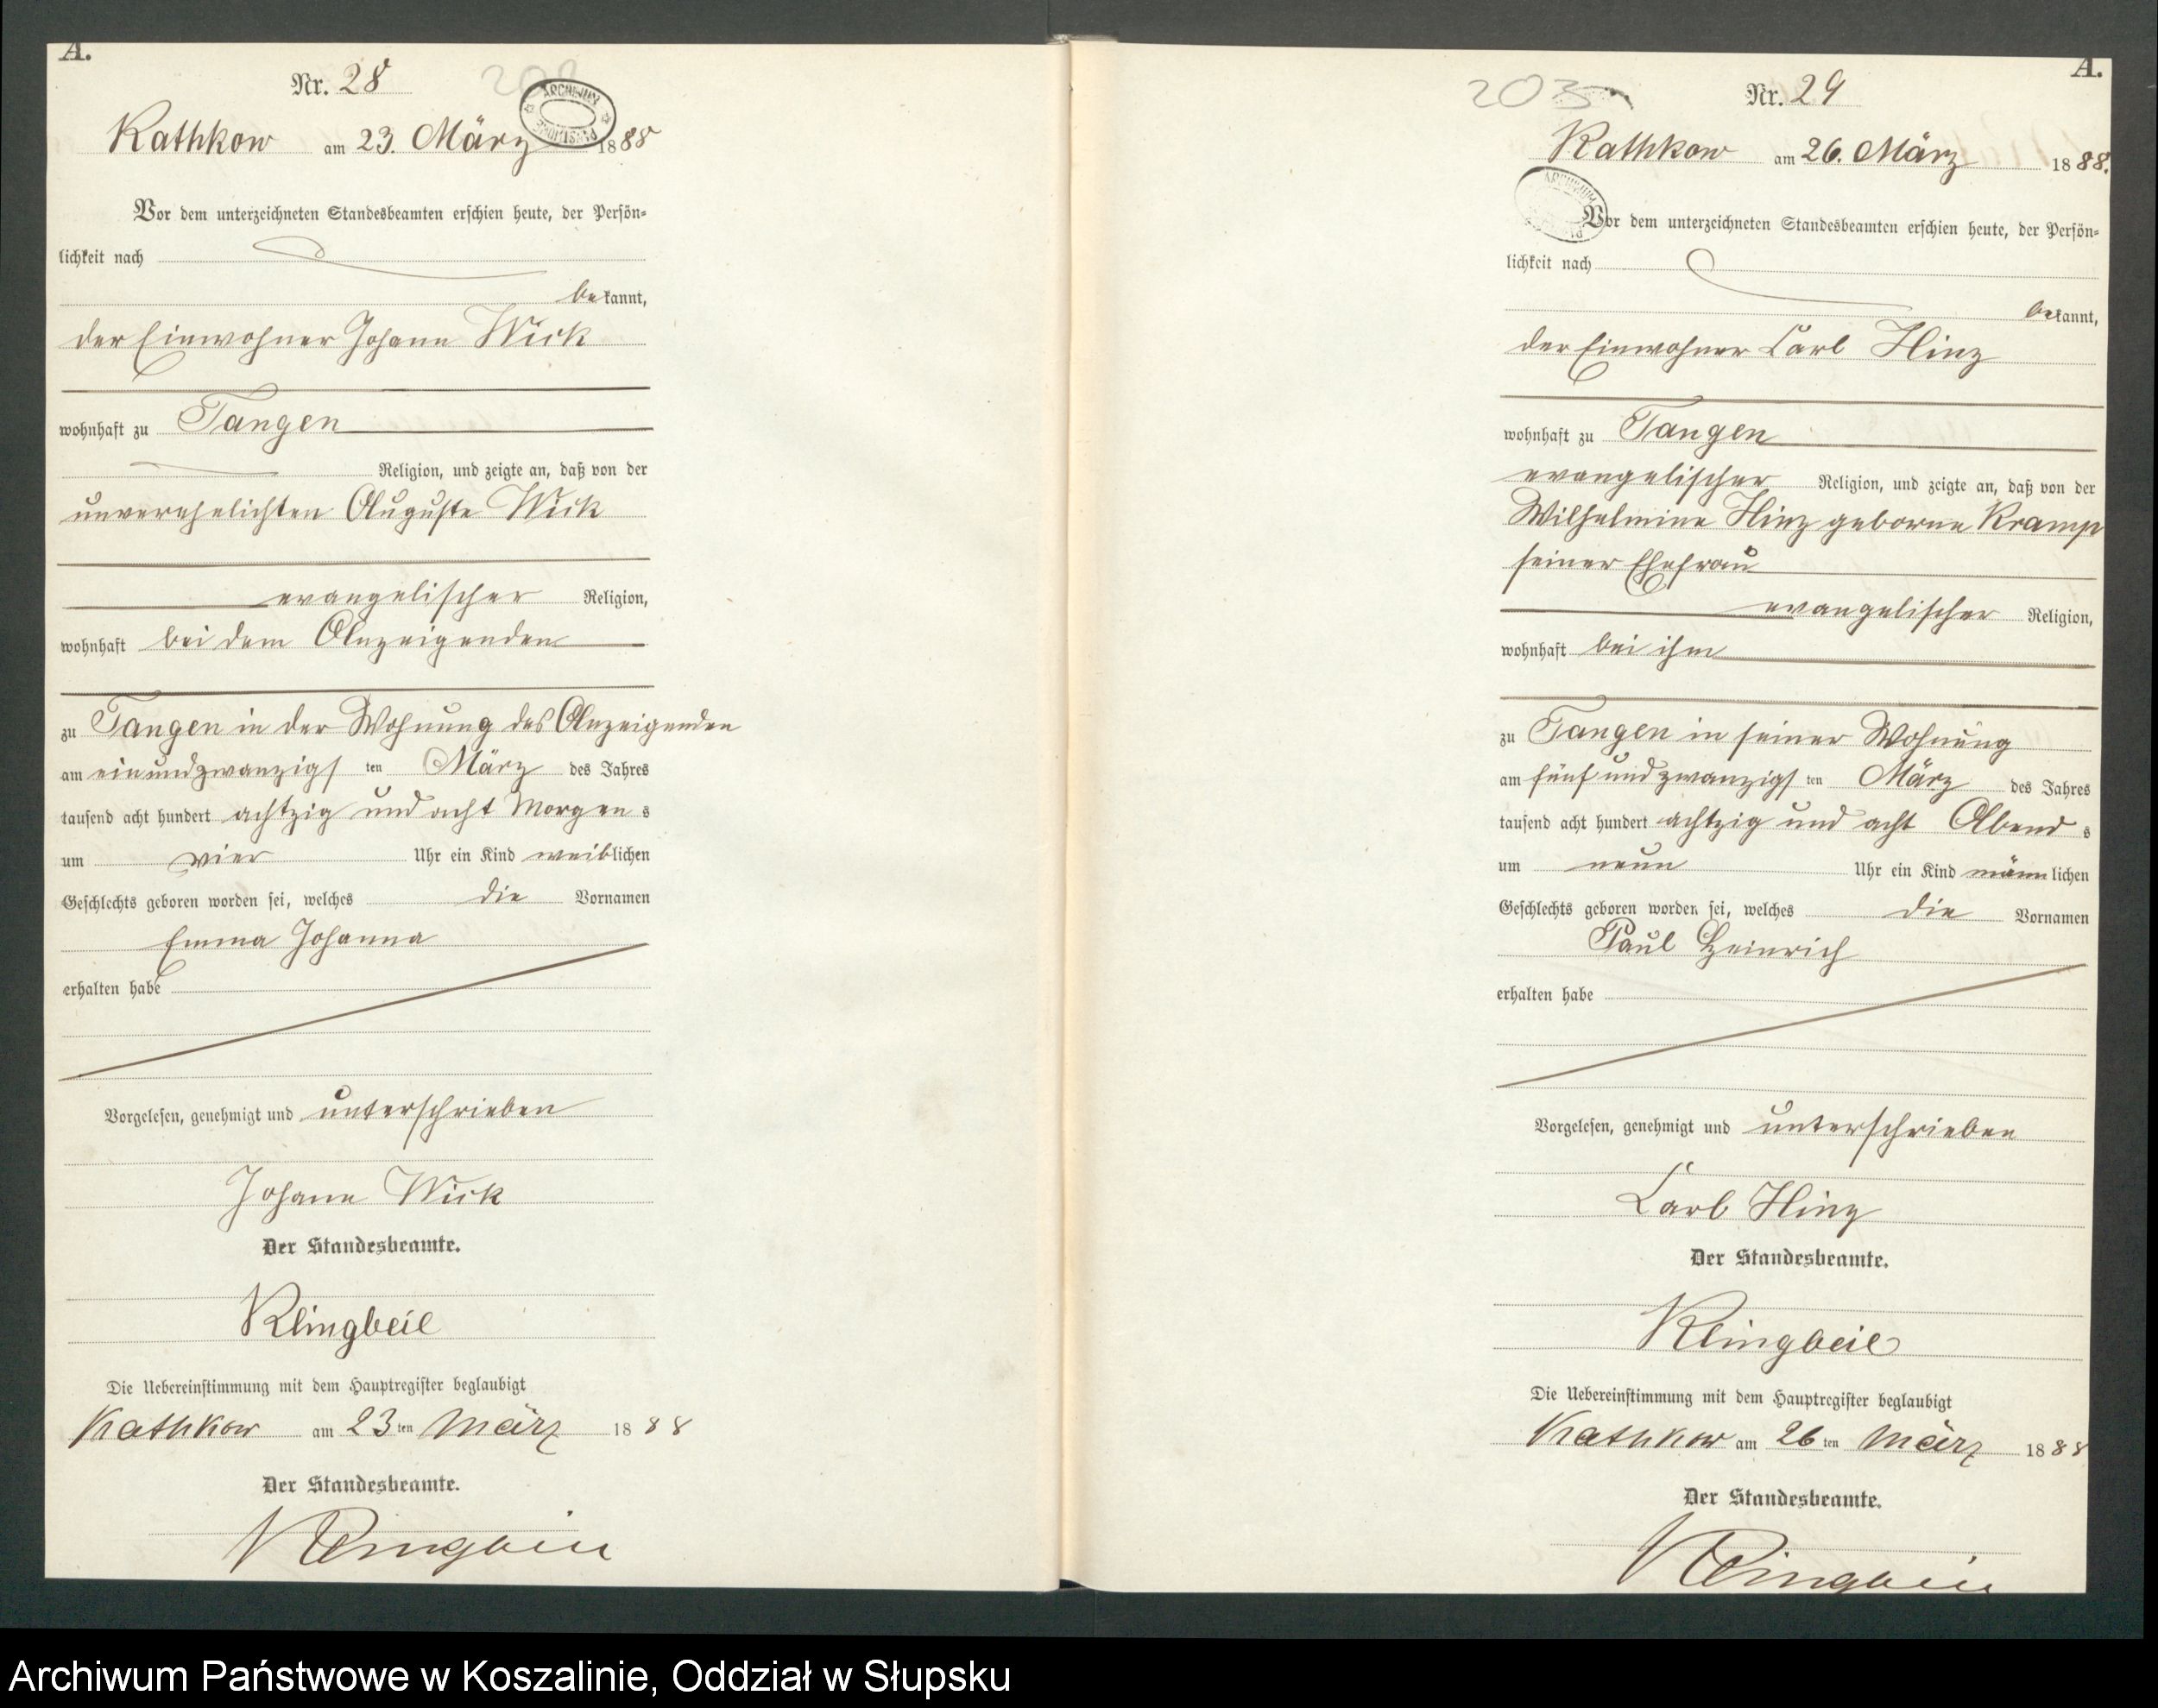 A.
Nr. 28
Kathkow am 23. März 1888
Vor dem unterzeichneten Standesbeamten erschien heute, der Persön=
lichkeit nach
bekannt,
der Einwohner Johann Wick
wohnhaft zu Tangen
Religion, und zeigte an, daß von der
unverehelichten Auguste Wick
evangelischer Religion,
wohnhaft bei dem Anzeigenden
zu Tangen in der Wohnung des Anzeigenden
am einundzwanzigsten März des Jahres
tausend acht hundert achtzig und acht Morgens
um vier Uhr ein Kind weiblichen
Geschlechts geboren worden sei, welches die Vornamen
Emma Johanna
erhalten habe
Vorgelesen, genehmigt und unterschrieben
Johann Wick
Der Standesbeamte.
Klingbeil
Die Uebereinstimmung mit dem Hauptregister beglaubigt
Kathkow am 23ten März 1888
Der Standesbeamte.
Klingbeil
A.
203
Nr. 29
Kathkow am 26. März 1888.
Vor dem unterzeichneten Standesbeamten erschien heute, der Persön=
lichkeit nach
bekannt,
der Einwohner Carl Hinz
wohnhaft zu Tangen
evangelischer Religion, und zeigte an, daß von der
Wilhelmine Hinz geborne Kramp
seiner Ehefrau
evangelischer Religion,
wohnhaft bei ihm
zu Tangen in seiner Wohnung
am fünf und zwanzigsten März des Jahres
tausend acht hundert achtzig und acht Abends
um neun Uhr ein Kind männlichen
Geschlechts geboren worden sei, welches die Vornamen
Paul Heinrich
erhalten habe
Vorgelesen, genehmigt und unterschrieben
Carl Hinz
Der Standesbeamte.
Klingbeil
Die Uebereinstimmung mit dem Hauptregister beglaubigt
Kathkow am 26ten März 1888
Der Standesbeamte.
Klingbeil
Archiwum Państwowe w Koszalinie, Oddział w Słupsku